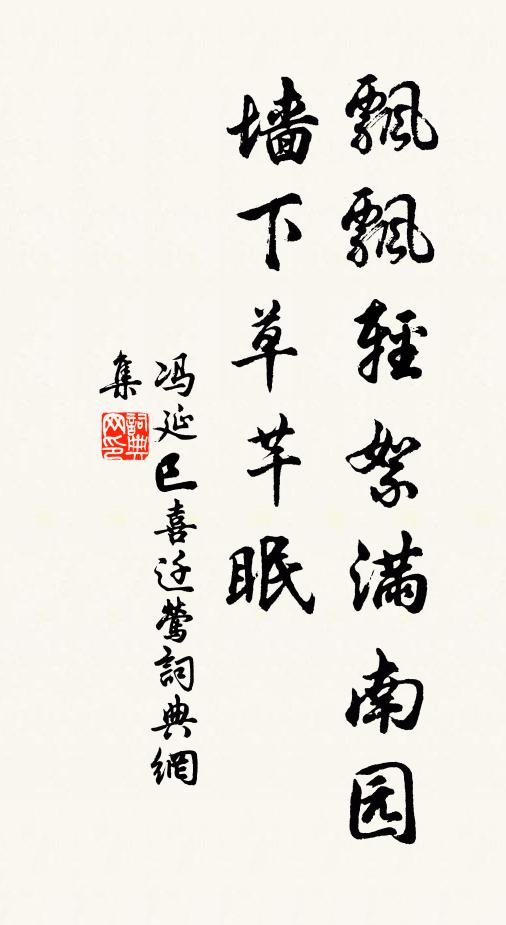 飘飘輕絮满南园
墙下草芊眠
冯延巳喜迁莺詞典網
集
詞典网印